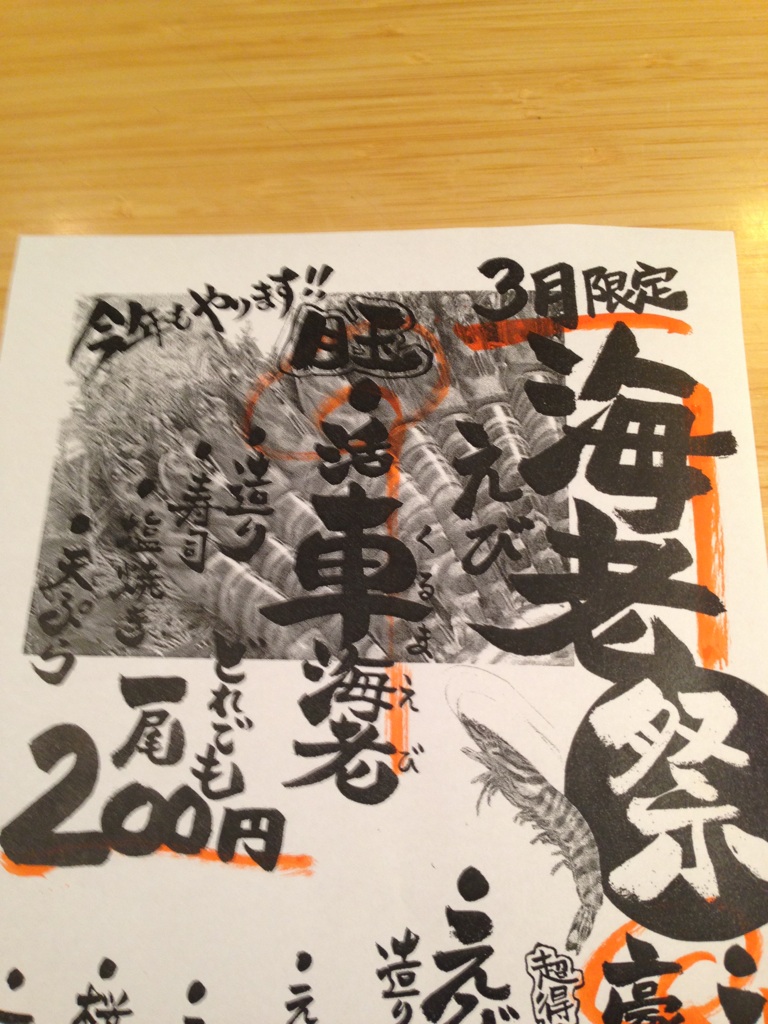 3月限定
海老祭
えび
今年もやります!!
旺
・活車海老
くるまえび
・造り
・寿司
・塩焼き
・天ぷら
どれでも
一尾
200円
超得
造り